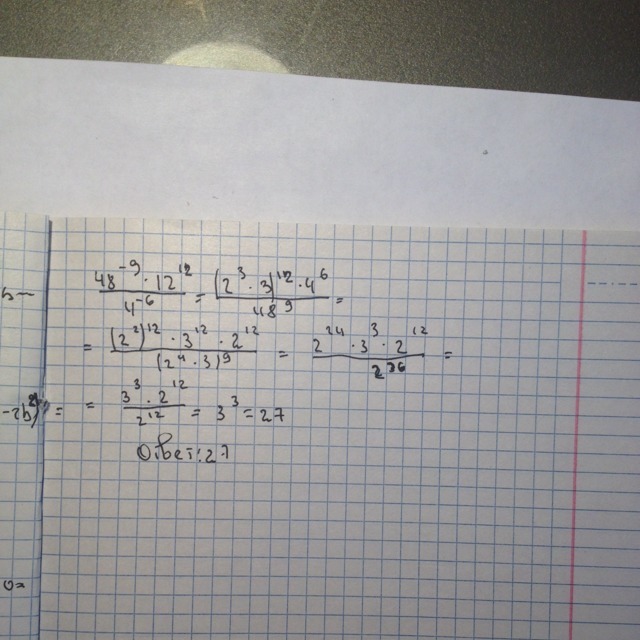 ь-
48^-9 · 12^12 / 4^-6 = (2^3 · 3)^12 · 4^6 / 48^9 =
= (2^2)^12 · 3^12 · 2^12 / (2^4 · 3)^9 = 2^24 · 3^3 · 2^12 / 2^36 =
= = 3^3 · 2^12 / 2^12 = 3^3 = 27
Ответ: 27
0=